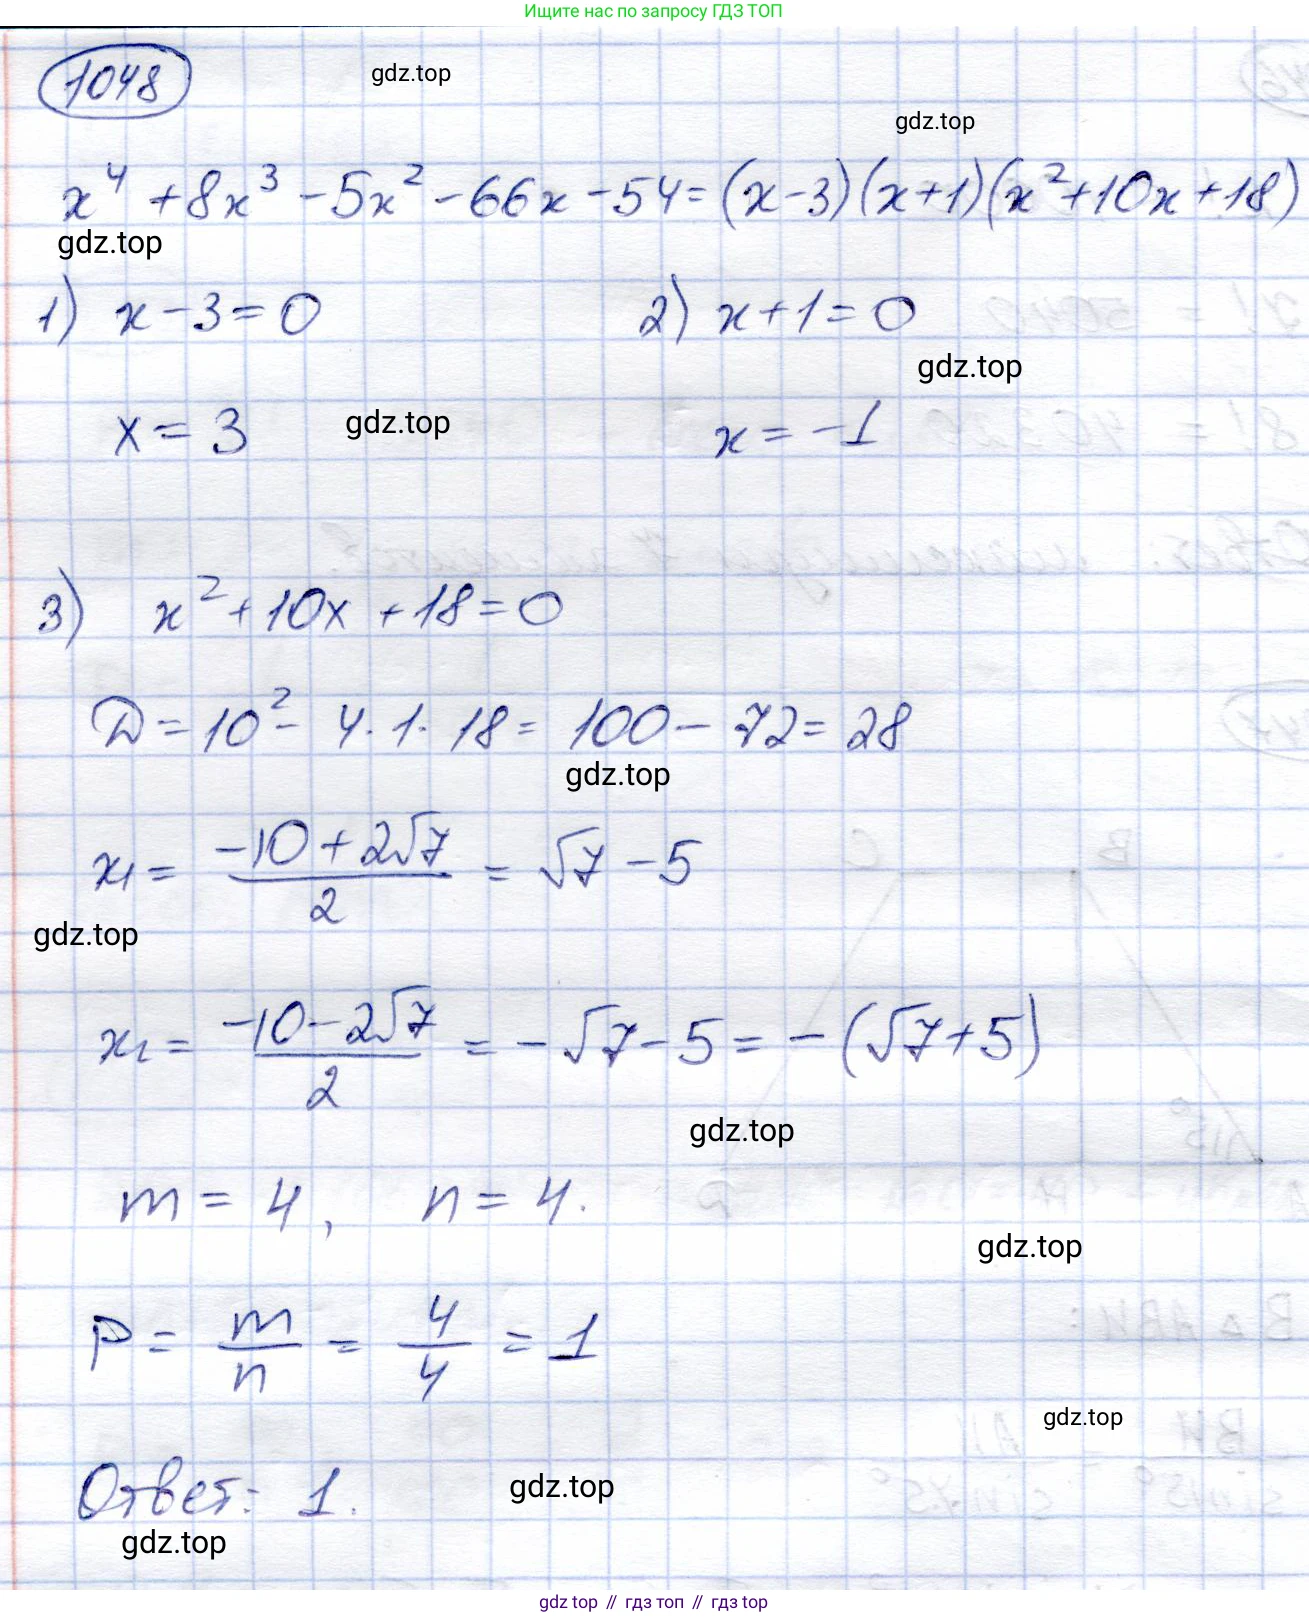 Ищите нас по запросу ГДЗ ТОП
1048
gdz.top
gdz.top
x⁴ + 8x³ - 5x² - 66x - 54 = (x-3)(x+1)(x²+10x+18)
gdz.top
1) x - 3 = 0
2) x + 1 = 0
gdz.top
x = 3
gdz.top
x = -1
3) x² + 10x + 18 = 0
D = 10² - 4·1·18 = 100 - 72 = 28
gdz.top
x₁ = (-10 + 2√7)/2 = √7 - 5
gdz.top
x₂ = (-10 - 2√7)/2 = -√7 - 5 = -(√7 + 5)
gdz.top
m = 4, n = 4.
gdz.top
P = m/n = 4/4 = 1
gdz.top
Ответ: 1.
gdz.top
gdz.top
gdz top // гдз топ // гдз top